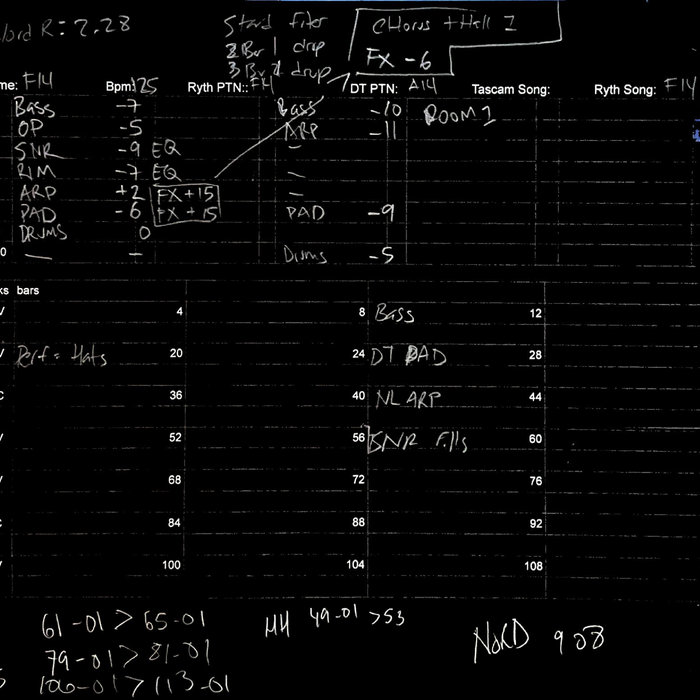 ord R: 2.28
Stard filter
2 Bar 1 drop
3 Bar 2 drup
CHorus + Hall 1
FX -6
me: F14 Bpm: 125 Ryth PTN:: F4 DT PTN: A14 Tascam Song: Ryth Song: F14
Bass -7 Bass -10 ROOM 1
OP -5 ARP -11
SNR -9 EQ —
RIM -7 EQ —
ARP +2 FX +15 —
PAD -6 FX +15 PAD -9
DRUMS 0
0 — — Drums -5
ks bars
V 4 8 Bass 12
V Perf = Hats 20 24 DT PAD 28
C 36 40 NL ARP 44
V 52 56 SNR Fills 60
V 68 72 76
C 84 88 92
V 100 104 108
61-01 > 65-01 HH 49-01 > 53
79-01 > 81-01 NORD 908
106-01 > 113-01